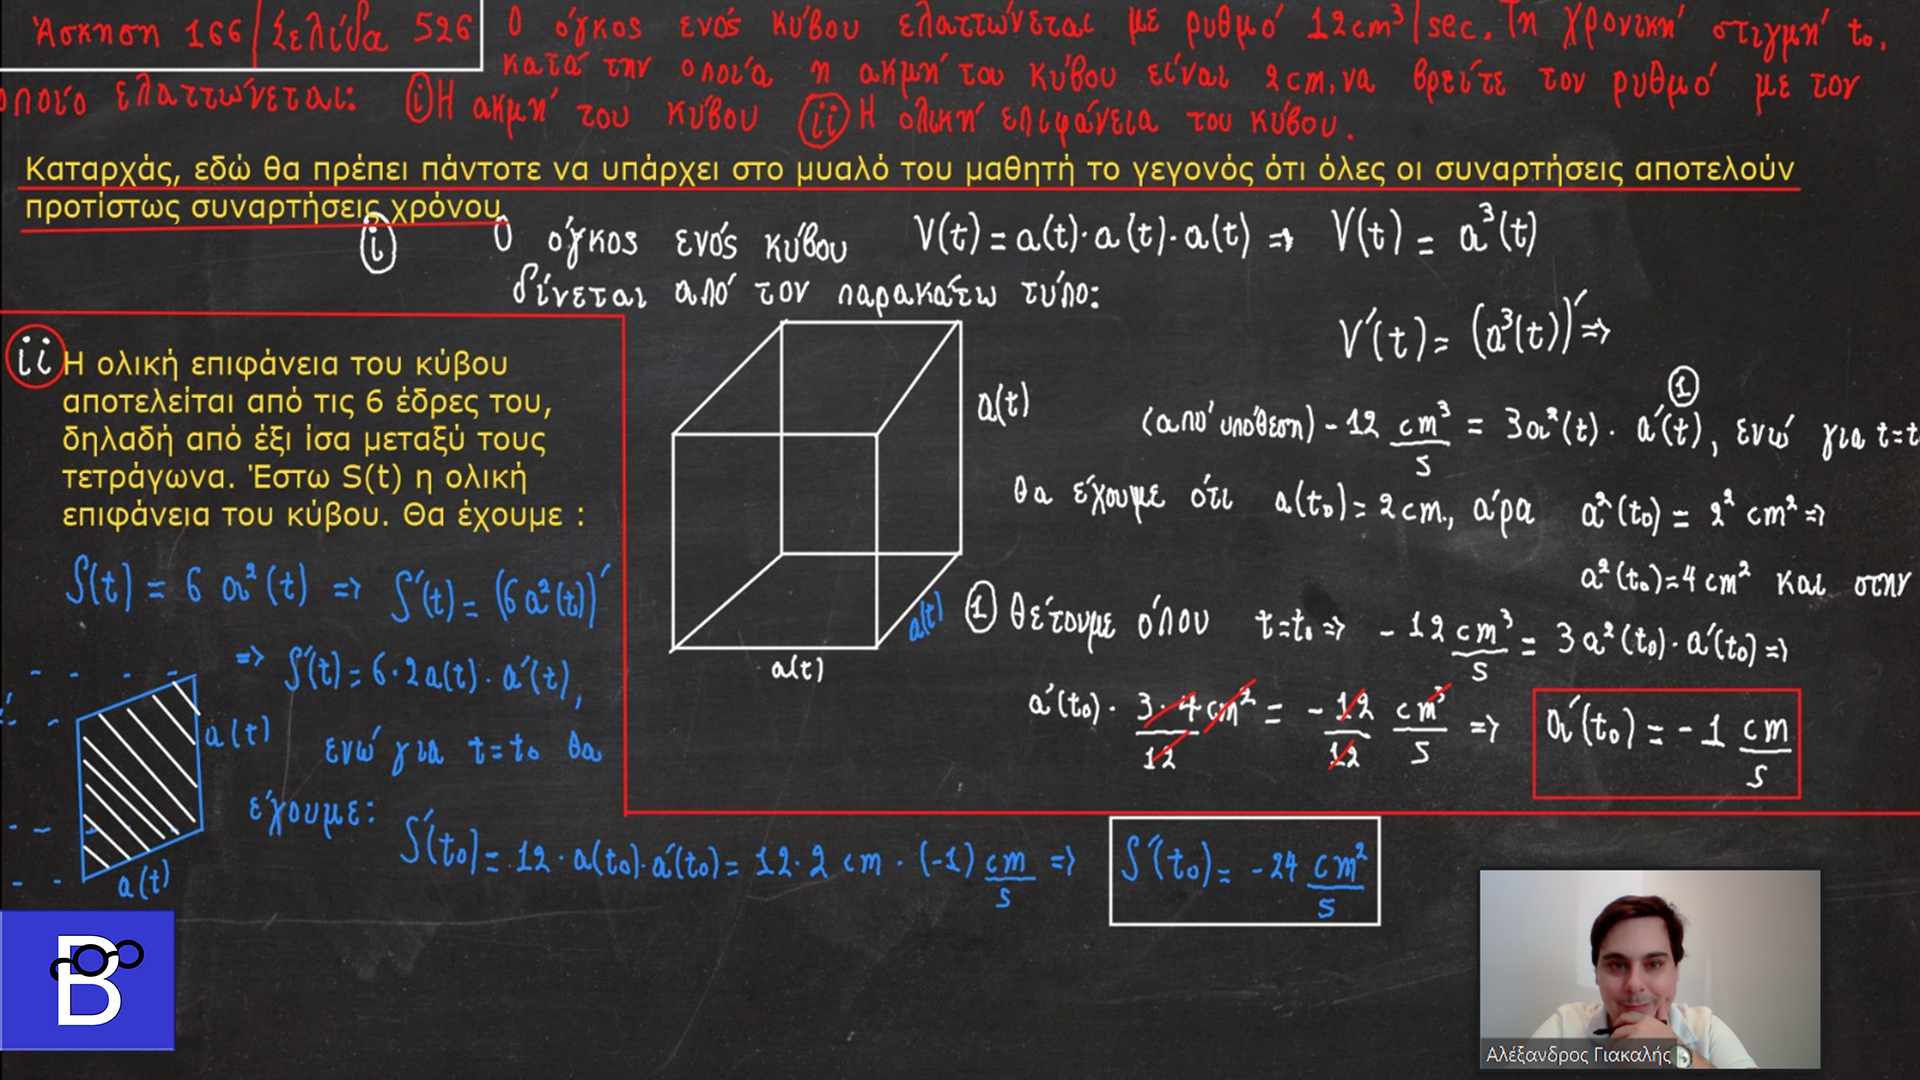 Άσκηση 166/Σελίδα 526
Ο όγκος ενός κύβου ελαττώνεται με ρυθμό 12cm³/sec. Τη χρονική στιγμή t₀,
κατά την οποία η ακμή του κύβου είναι 2cm, να βρείτε τον ρυθμό με τον
οποίο ελαττώνεται: (i) Η ακμή του κύβου (ii) Η ολική επιφάνεια του κύβου.
Καταρχάς, εδώ θα πρέπει πάντοτε να υπάρχει στο μυαλό του μαθητή το γεγονός ότι όλες οι συναρτήσεις αποτελούν
προτίστως συναρτήσεις χρόνου
(i) Ο όγκος ενός κύβου V(t) = a(t)·a(t)·a(t) ⇒ V(t) = a³(t)
δίνεται από τον παρακάτω τύπο:
V'(t) = (a³(t))' ⇒
(1)
(από υπόθεση) -12 cm³/s = 3a²(t) · a'(t), ενώ για t=t
a(t)
θα έχουμε ότι a(t₀) = 2cm., άρα a²(t₀) = 2² cm² ⇒
a²(t₀) = 4 cm² και στην
(1) θέτουμε όπου t=t₀ ⇒ -12 cm³/s = 3a²(t₀)·a'(t₀) ⇒
a(t)
a(t)
a'(t₀) · 3·4 cm²/12 = -12/12 cm³/s ⇒ a'(t₀) = -1 cm/s
(ii) Η ολική επιφάνεια του κύβου
αποτελείται από τις 6 έδρες του,
δηλαδή από έξι ίσα μεταξύ τους
τετράγωνα. Έστω S(t) η ολική
επιφάνεια του κύβου. Θα έχουμε :
S(t) = 6 a²(t) ⇒ S'(t) = (6a²(t))'
⇒ S'(t) = 6·2a(t)·a'(t),
a(t)
ενώ για t=t₀ θα
έχουμε:
a(t)
S'(t₀) = 12·a(t₀)·a'(t₀) = 12·2 cm · (-1) cm/s ⇒ S'(t₀) = -24 cm²/s
B
Αλέξανδρος Γιακαλής